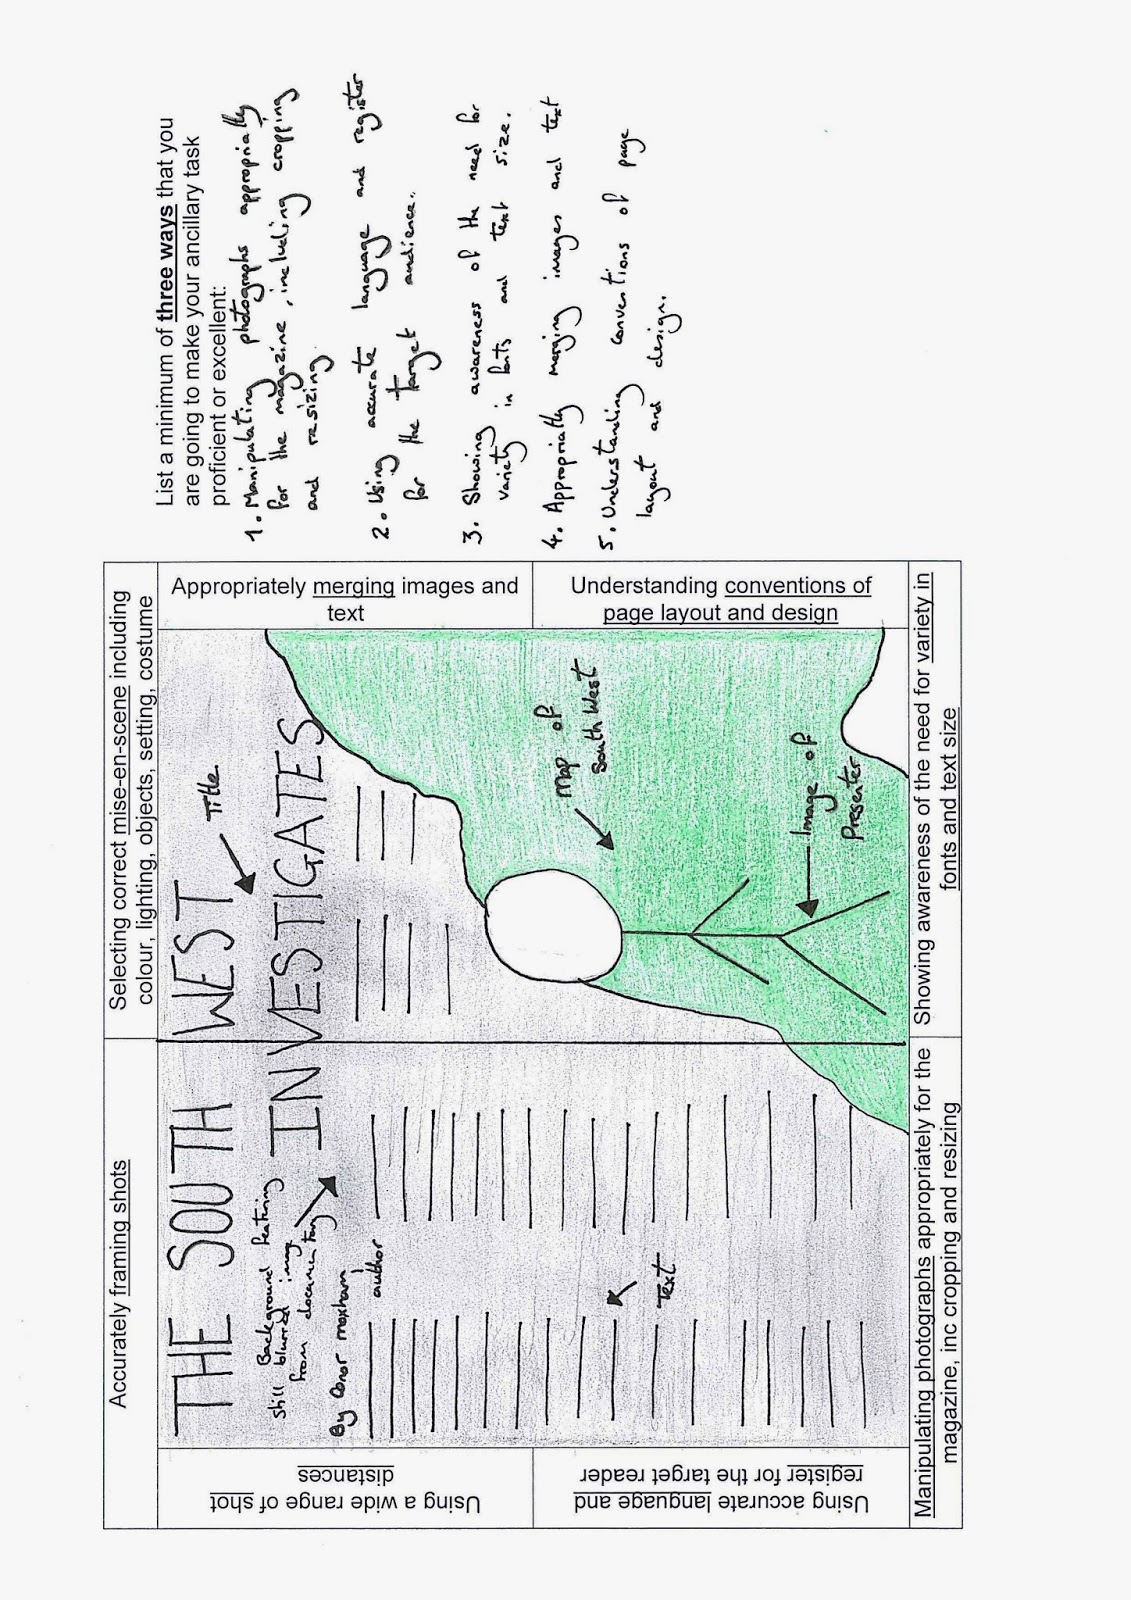 Accurately framing shots
Selecting correct mise-en-scene including
colour, lighting, objects, setting, costume
Using a wide range of shot
distances
Using accurate language and
register for the target reader
THE SOUTH WEST
Title
INVESTIGATES
Background featuring
still blurred image
from documentary
By Conor moxham
author
Text
Map of
South West
Image of
Presenter
Appropriately merging images and
text
Understanding conventions of
page layout and design
Manipulating photographs appropriately for the
magazine, inc cropping and resizing
Showing awareness of the need for variety in
fonts and text size
List a minimum of three ways that you
are going to make your ancillary task
proficient or excellent:
1. Manipulating photographs appropriately
for the magazine, including cropping
and resizing
2. Using accurate language and register
for the target audience.
3. Showing awareness of the need for
variety in fonts and text size.
4. Appropriatly merging images and text
5. Understanding conventions of page
layout and design.